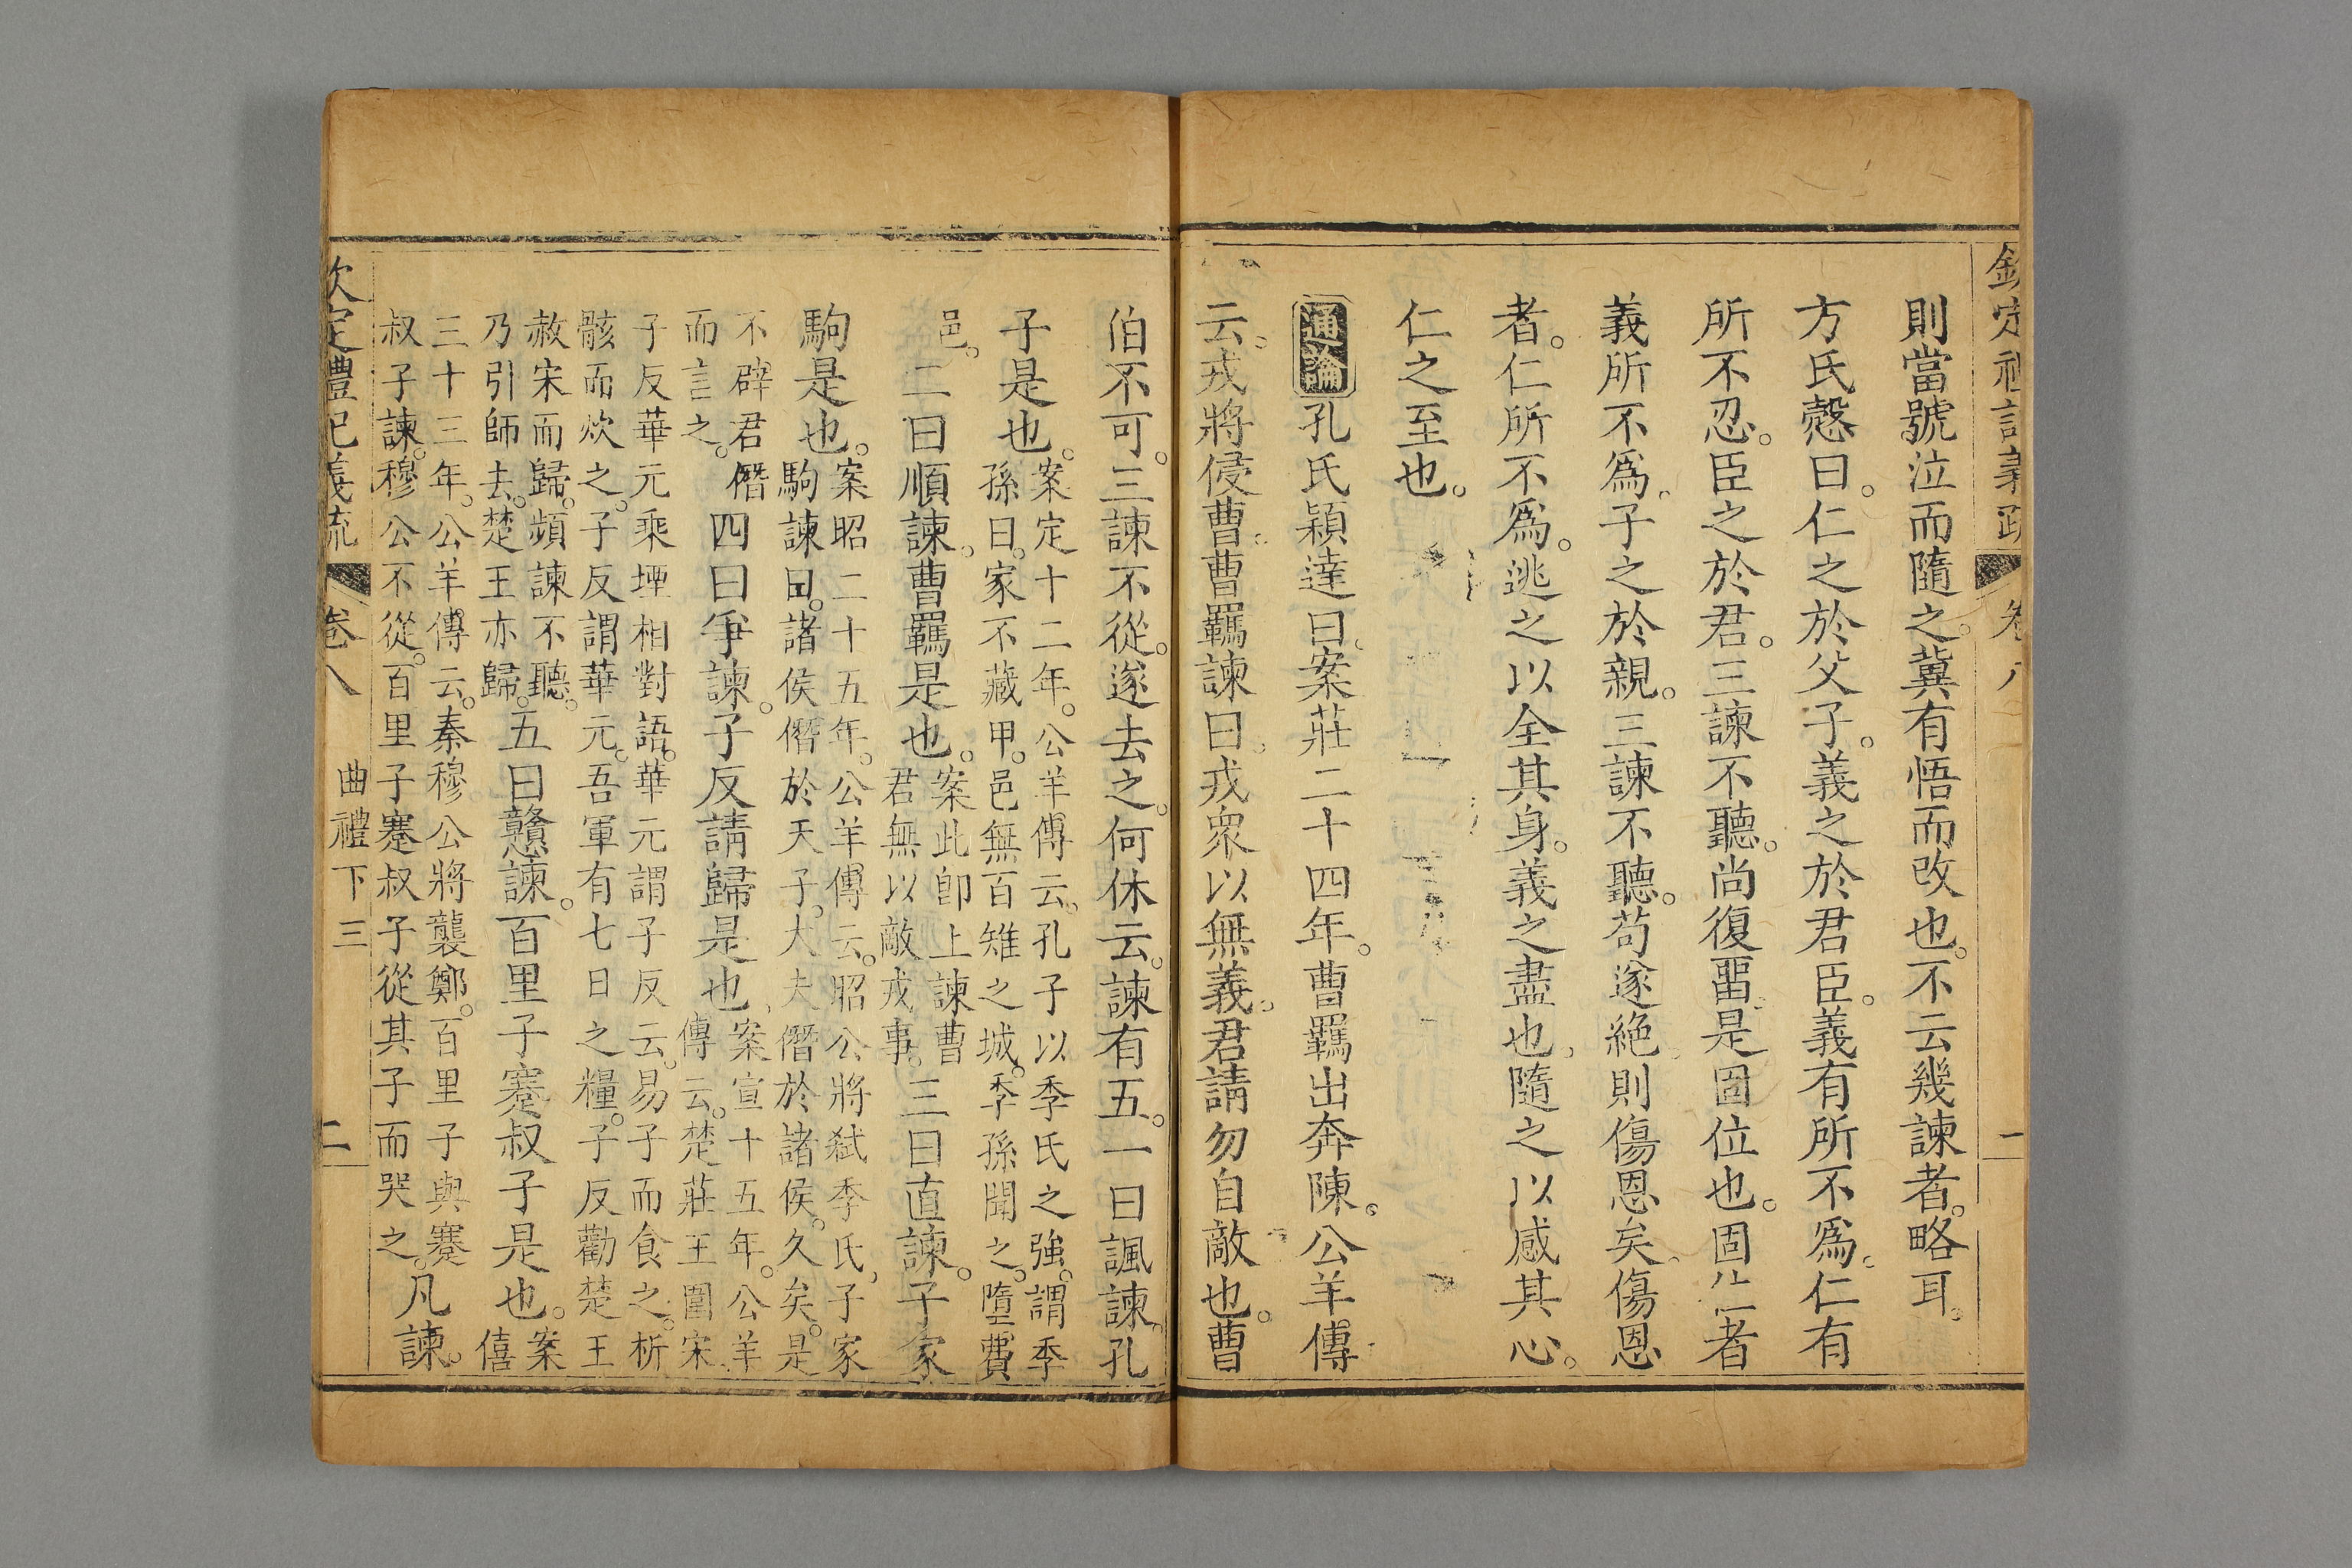 欽定禮記義疏 卷八 二
則當號泣而隨之冀有悟而改也。不云幾諫者。略耳。
方氏慤曰。仁之於父子。義之於君臣。義有所不爲。仁有
所不忍。臣之於君。三諫不聽。尚復畱。是固位也。固位者
義所不爲。子之於親。三諫不聽。苟遂絶則傷恩矣。傷恩
者。仁所不爲。逃之以全其身。義之盡也。隨之以感其心。
仁之至也。
通論 孔氏穎達曰。案莊二十四年。曹羈出奔陳。公羊傳
云。戎將侵曹。曹羈諫曰。戎衆以無義。君請勿自敵也。曹
伯不可。三諫不從。遂去之。何休云。諫有五。一曰諷諫。孔
子是也。案定十二年。公羊傳云。孔子以季氏之強。謂季
孫曰。家不藏甲。邑無百雉之城。季孫聞之。墮費
邑。二曰順諫。曹羈是也。案此卽上諫曹
君無以敵戎事。三曰直諫。子家
駒是也。案昭二十五年。公羊傳云。昭公將弒季氏。子家
駒諫曰。諸侯僭於天子。大夫僭於諸侯。久矣。是
不辟君僭
而言之。四曰爭諫。子反請歸是也。案宣十五年。公羊
傳云。楚莊王圍宋
子反華元乘堙相對語。華元謂子反云。易子而食之。析
骸而炊之。子反謂華元。吾軍有七日之糧。子反勸楚王
赦宋而歸。頻諫不聽。
乃引師去。楚王亦歸。五曰戇諫。百里子蹇叔子是也。案
僖
三十三年。公羊傳云。秦穆公將襲鄭。百里子與蹇
叔子諫。穆公不從。百里子蹇叔子從其子而哭之。凡諫。
欽定禮記義疏 卷八 曲禮下三 二